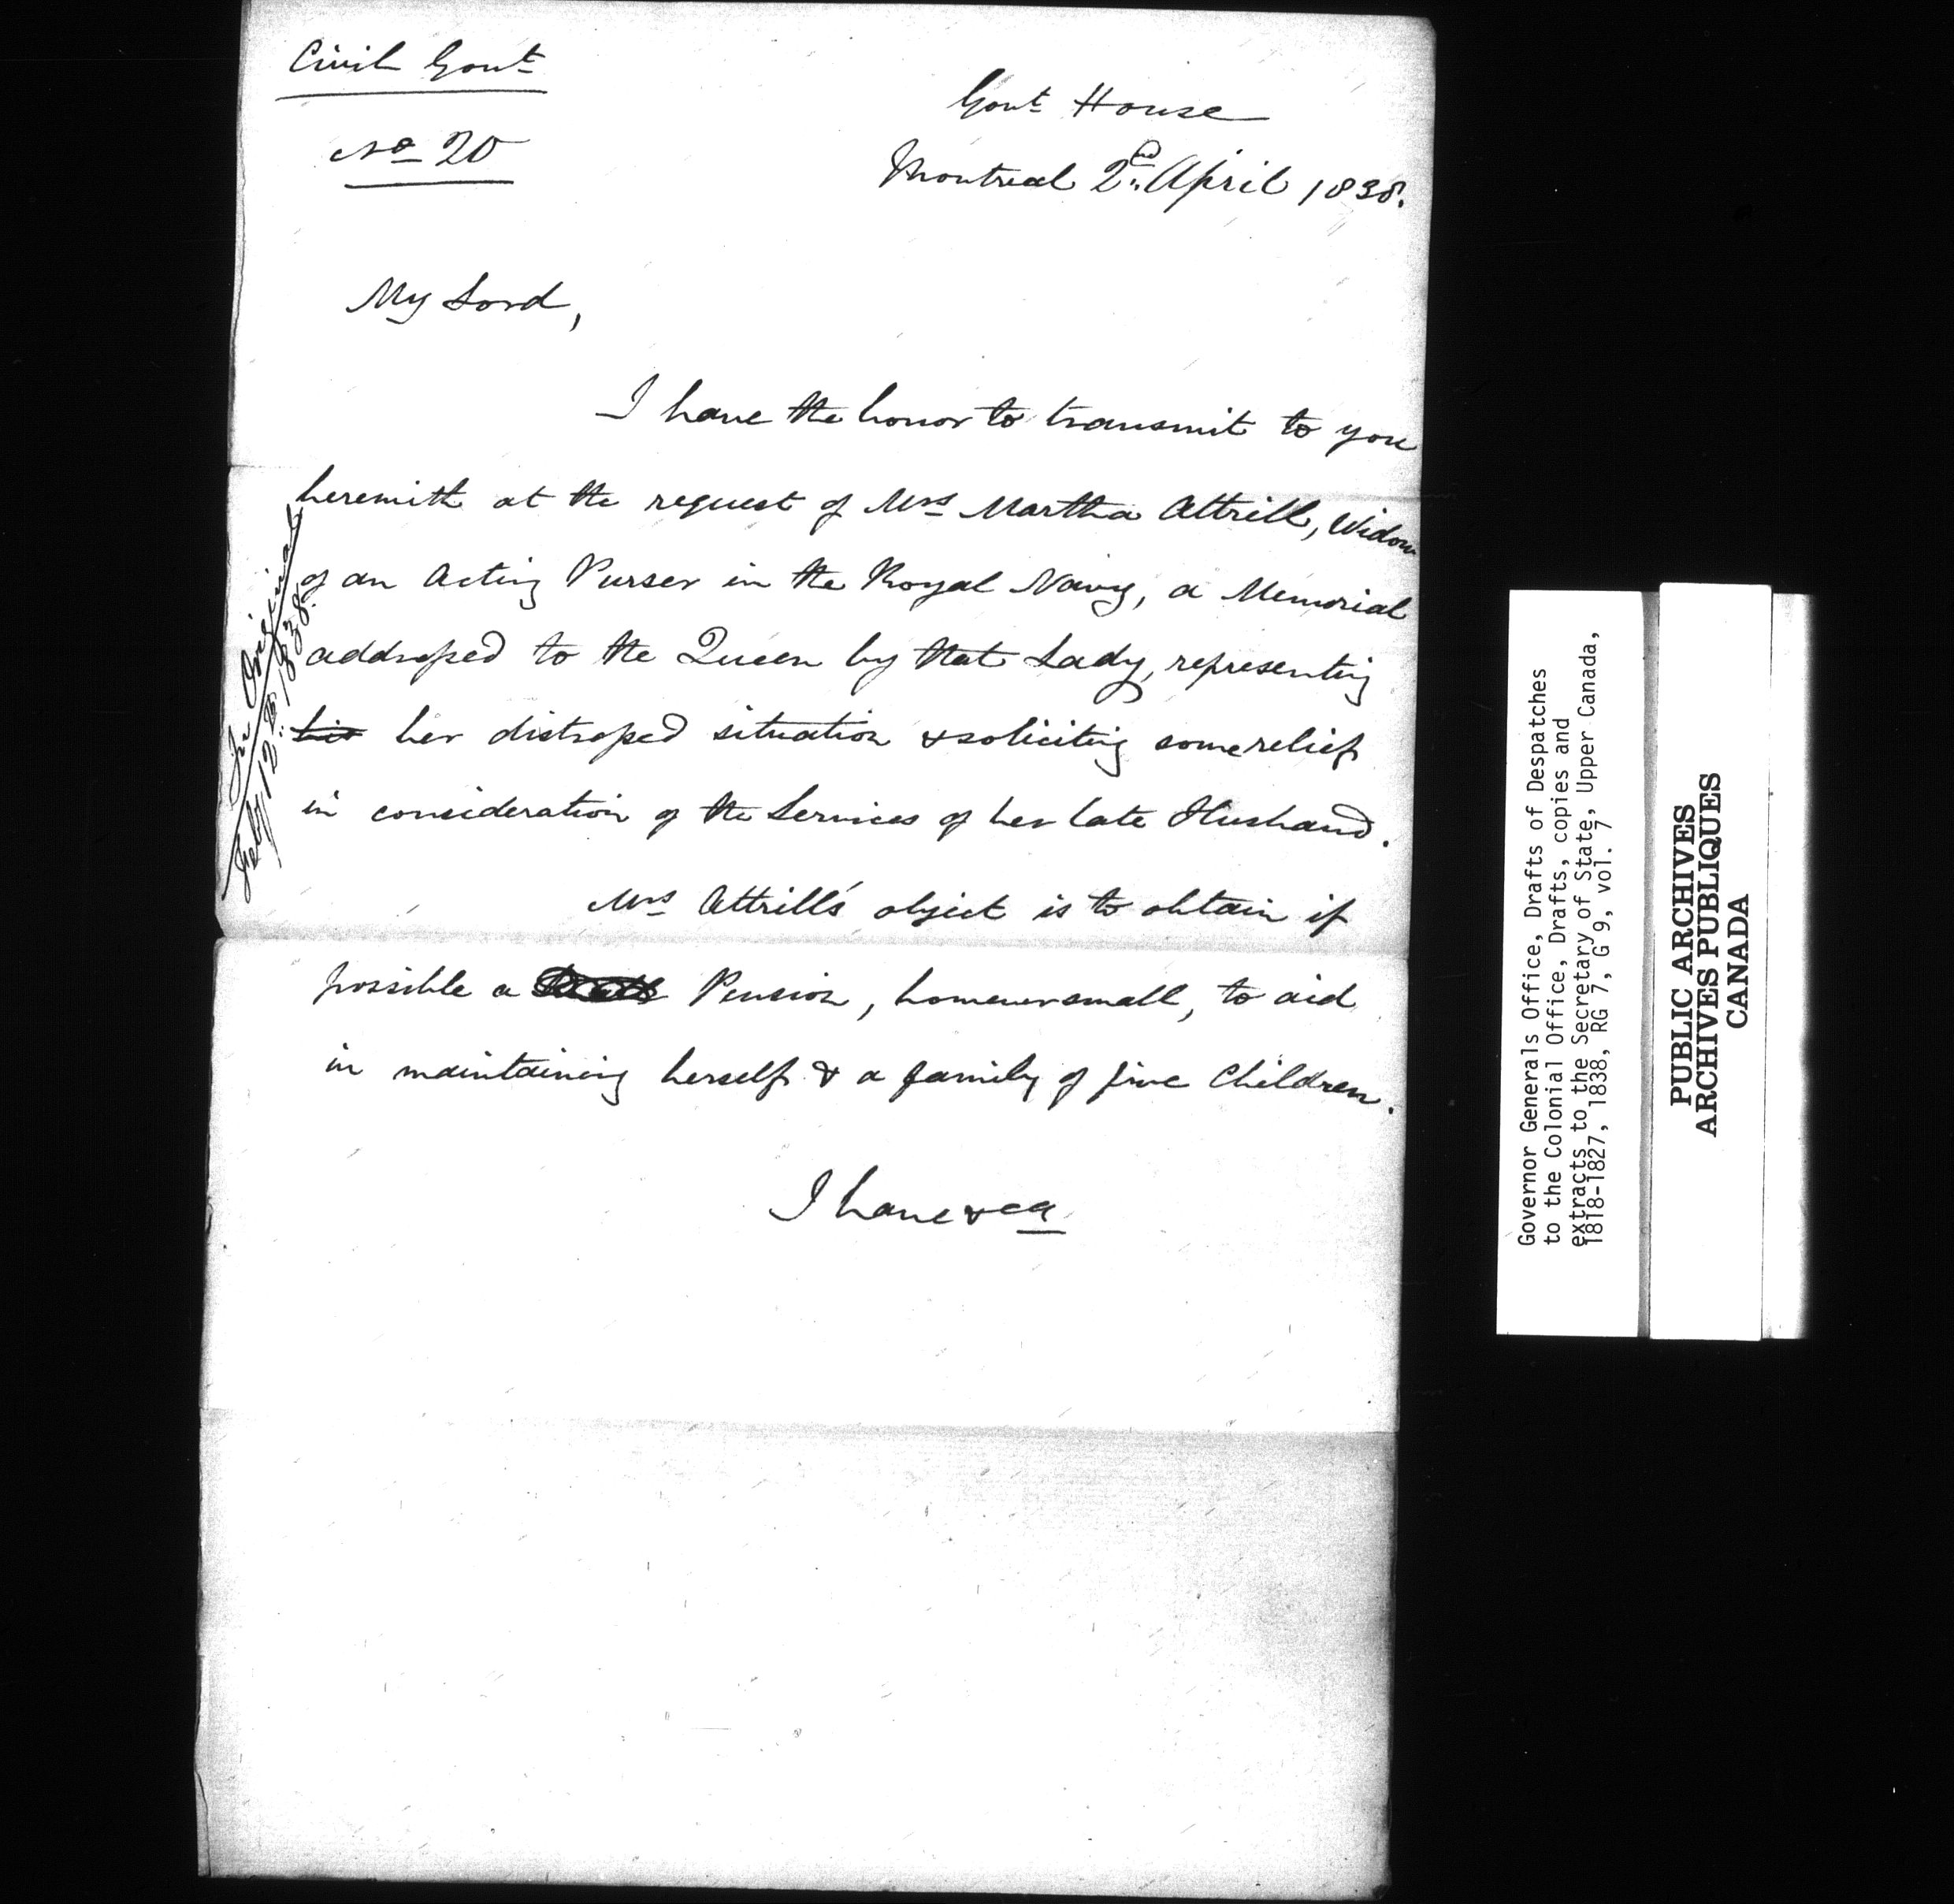 Civil Govt
No 20
Govt House
Montreal 2nd April 1838.
My Lord,
I have the honor to transmit to you
herewith at the request of Mrs Martha Attrill, Widow
of an Acting Purser in the Royal Navy, a Memorial
addressed to the Queen by that Lady, representing
his her distressed situation & soliciting some relief
in consideration of the Services of her late Husband.
Mrs Attrill's object is to obtain if
possible a Pension, however small, to aid
in maintaining herself & a family of five Children.
I have &ca
Original
Feby 12th 1838.
Governor Generals Office, Drafts of Despatches
to the Colonial Office, Drafts, copies and
extracts to the Secretary of State, Upper Canada,
1818-1827, 1838, RG 7, G 9, vol. 7
PUBLIC ARCHIVES
ARCHIVES PUBLIQUES
CANADA